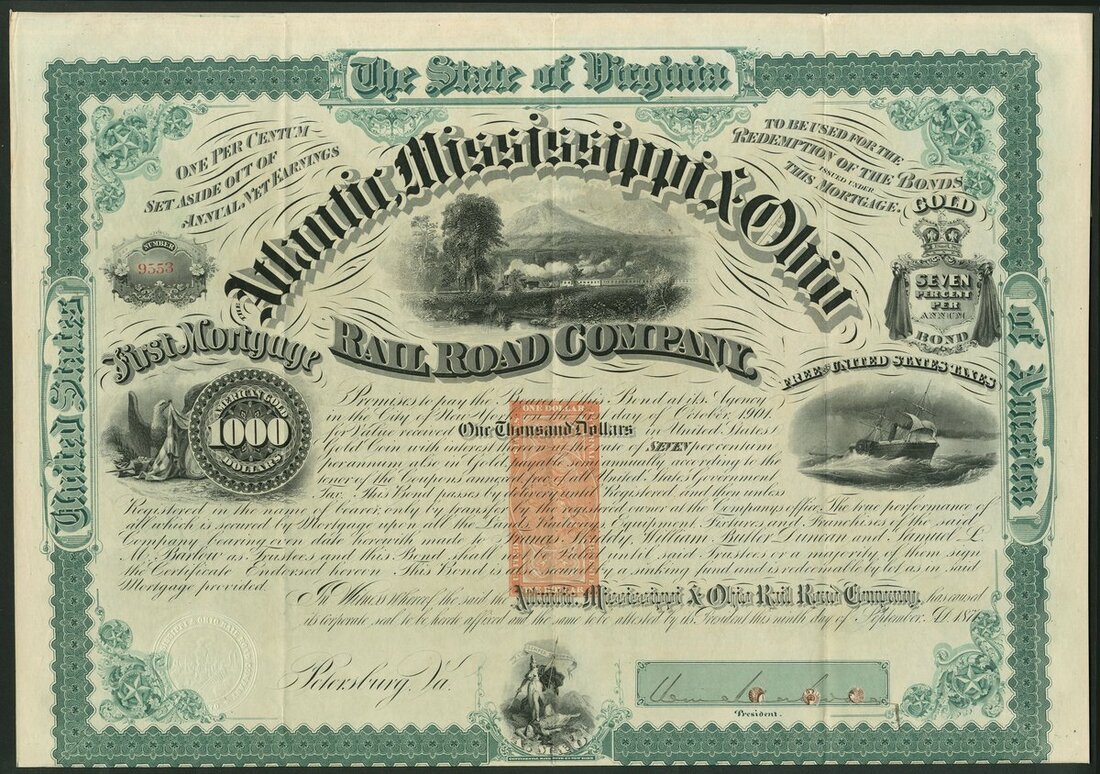 The State of Virginia
United States
of America
ONE PER CENTUM
SET ASIDE OUT OF
ANNUAL NET EARNINGS
TO BE USED FOR THE
REDEMPTION OF THE BONDS
ISSUED UNDER
THIS MORTGAGE.
NUMBER
9553
THE
Atlantic, Mississippi & Ohio
RAIL ROAD COMPANY.
GOLD
SEVEN
PER CENT
PER
ANNUM
BOND
First Mortgage
FREE OF UNITED STATES TAXES
AMERICAN GOLD
1000
DOLLARS
ONE DOLLAR
Promises to pay the Bond at its Agency
in the City of New York on the first day of October, 1901.
for Value received One Thousand Dollars in United States
Gold Coin with interest thereon at the rate of SEVEN per centum
per annum also in Gold, semi annually according to the
tenor of the Coupons annexed free of all United States Government
Tax. This Bond passes by delivery until Registered and then unless
Registered in the name of bearer, only by transfer by the registered owner at the Company's office. The true performance of
all which is secured by Mortgage upon all the Lands, Equipment, Fixtures and Franchises of the said
Company bearing even date herewith, made to Francis Skiddy, William Butler Duncan and Samuel L.
M. Barlow as Trustees and this Bond shall not be Valid until said Trustees or a majority of them sign
the Certificate Endorsed hereon. This Bond is also secured by a sinking fund and is redeemable by lot as in said
Mortgage provided.
In Witness whereof the said the Atlantic, Mississippi & Ohio Rail Road Company, has caused
its corporate seal to be hereto affixed and the same to be attested by its President this ninth day of September. A.D. 1871
Petersburg, Va.
President.
A.M.&O.